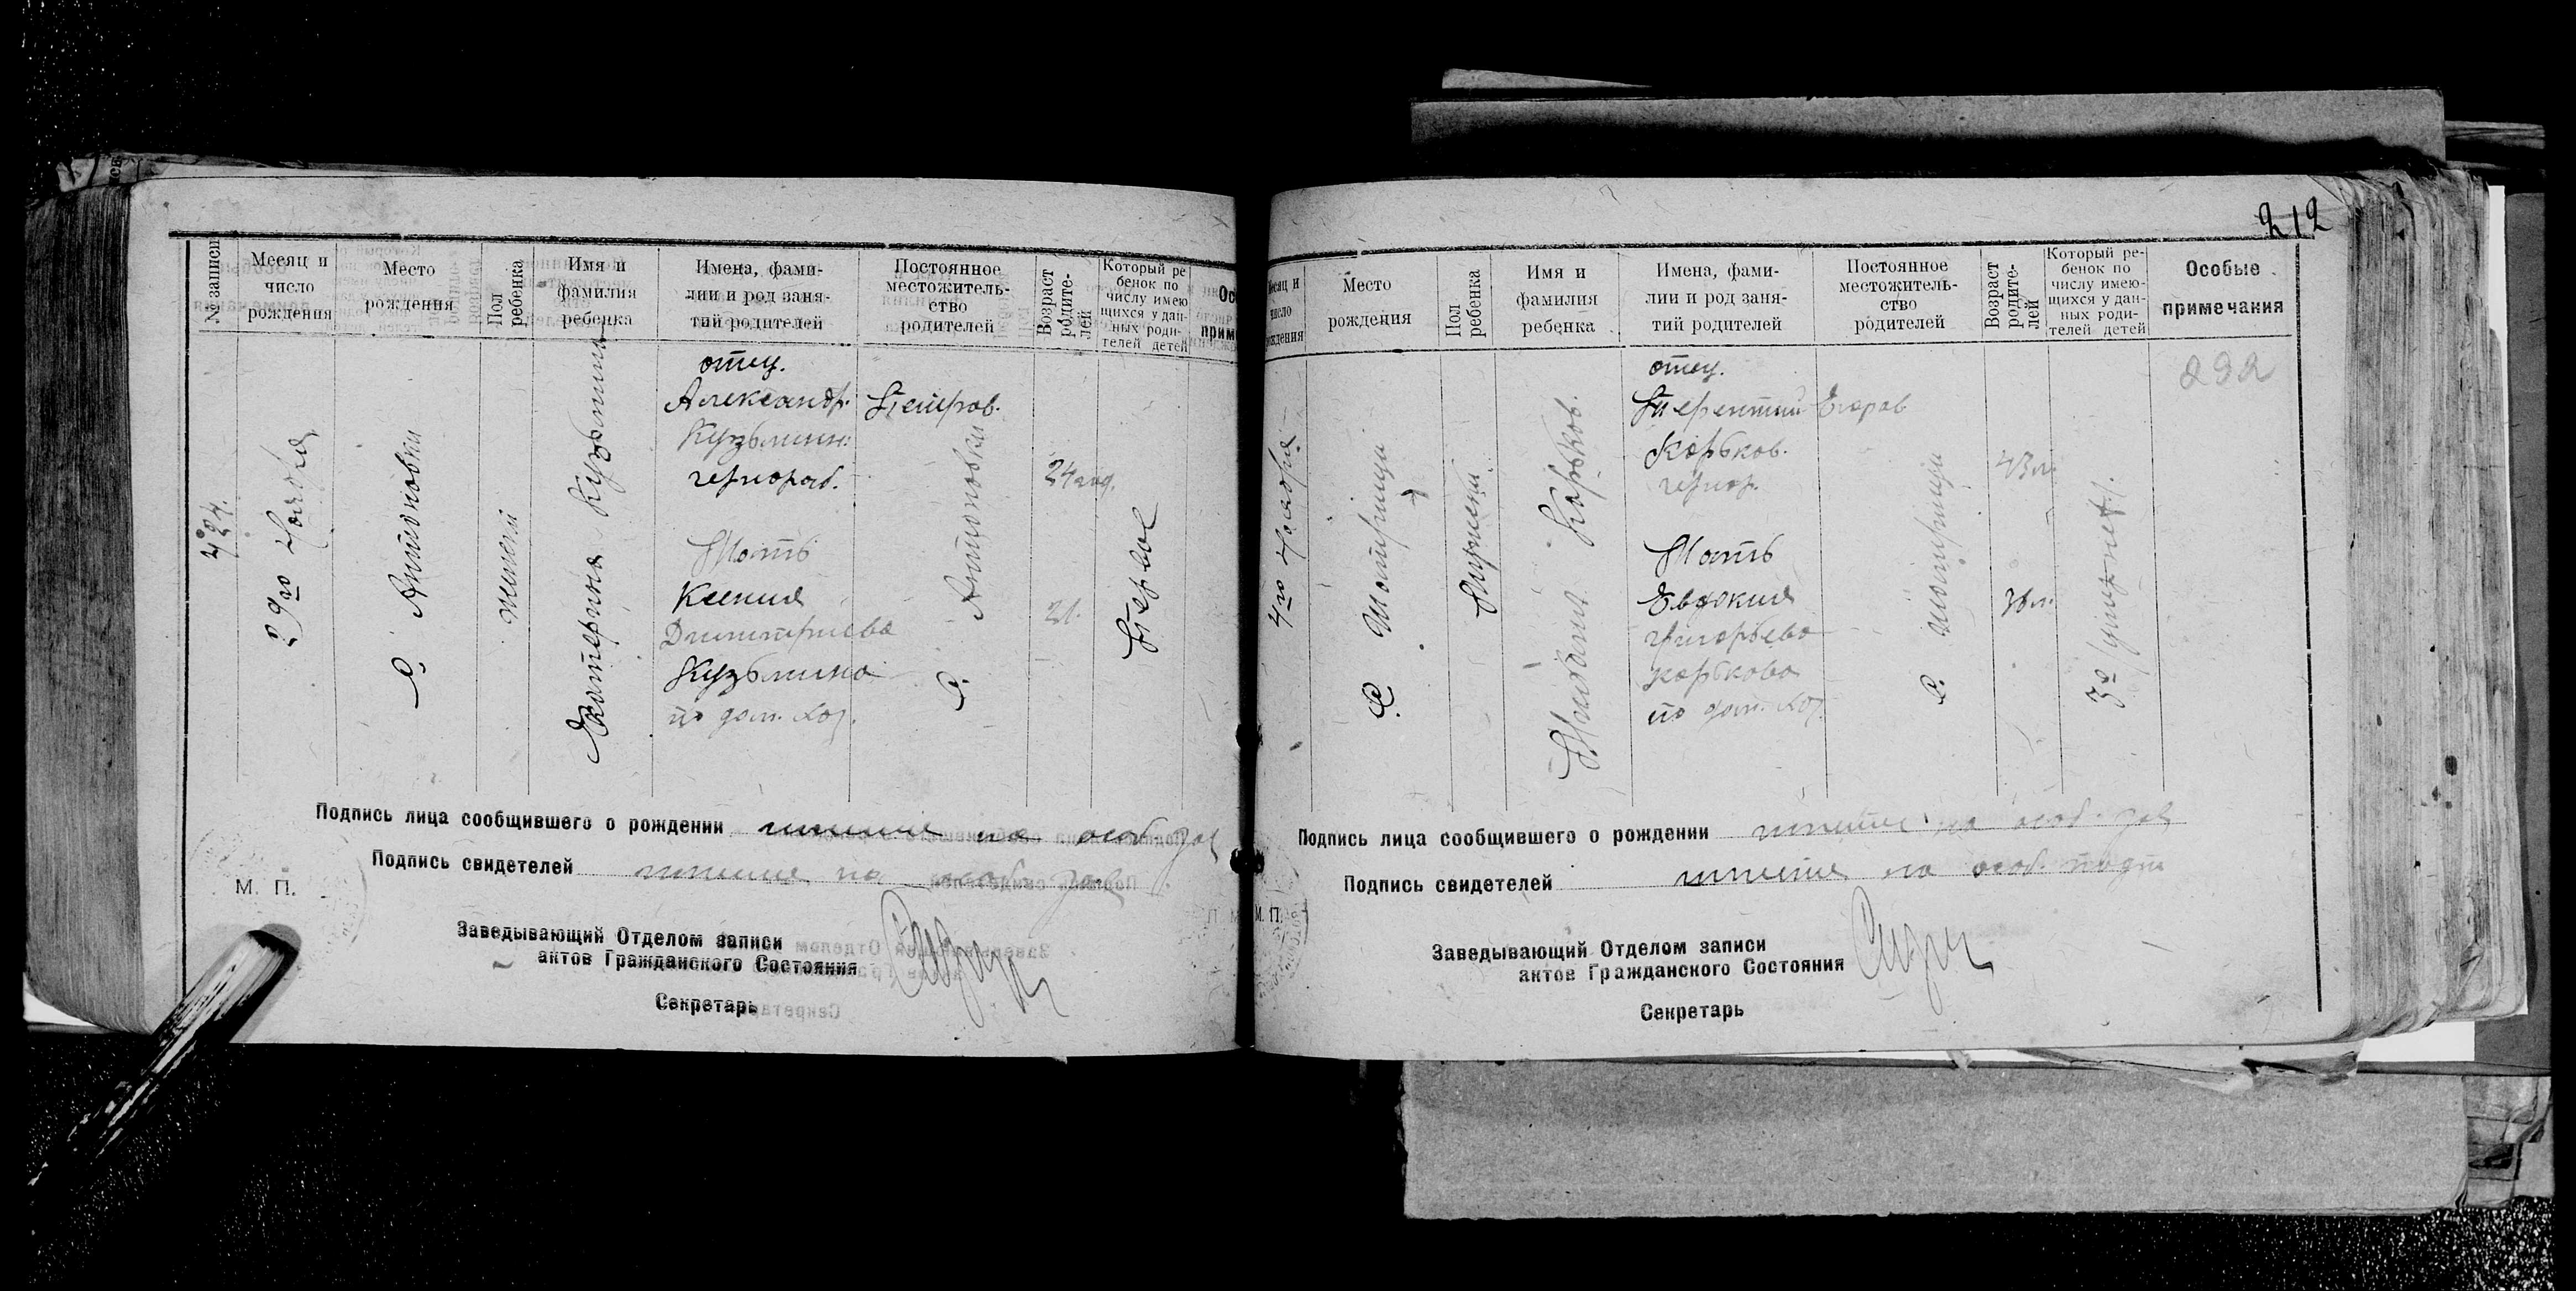 № записи
Месяц и
число
рождения
Место
рождения
Пол
ребенка
Имя и
фамилия
ребенка
Имена, фами-
лии и род заня-
тий родителей
Постоянное
местожитель-
ство
родителей
Возраст
родите-
лей
Который ре
бенок по
числу имею
щихся у дан-
ных роди-
телей детей
Ос
прим
424.
29го Ноября
с. Антоновки
женский
Екатерина Кузьмина
отец.
Александр. Петров.
Кузьмин.
чернораб.
Мать
Ксения
Дмитриева
Кузьмина
по дом. хоз.
с. Антоновки
24 год.
21.
Первое
Подпись лица сообщившего о рождении имеется на особ
Подпись свидетелей имеется на особ
М. П.
Заведывающий Отделом записи
актов Гражданского Состояния
Секретарь
212
есяц и
число
ождения
Место
рождения
Пол
ребенка
Имя и
фамилия
ребенка
Имена, фами-
лии и род заня-
тий родителей
Постоянное
местожитель-
ство
родителей
Возраст
родите-
лей
Который ре-
бенок по
числу имею-
щихся у дан-
ных роди-
телей детей
Особые
примечания
292
4го Ноября
с.
Корьков.
отец.
Терентий Егоров
Корьков.
чернор.
Мать
Евдокия
Григорьева
Корькова
по дом. хоз.
с.
43 л.
38 л.
Подпись лица сообщившего о рождении имеется на особ.
Подпись свидетелей имеется на особ.
М. П.
Заведывающий Отделом записи
актов Гражданского Состояния
Секретарь